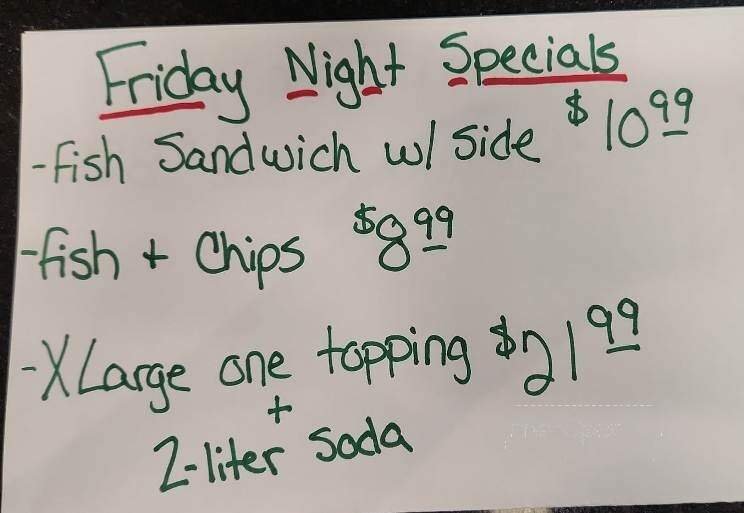 Friday Night Specials
-fish Sandwich w/ side $10.99
-fish + Chips $8.99
-XLarge one topping $21.99
+
2-liter Soda